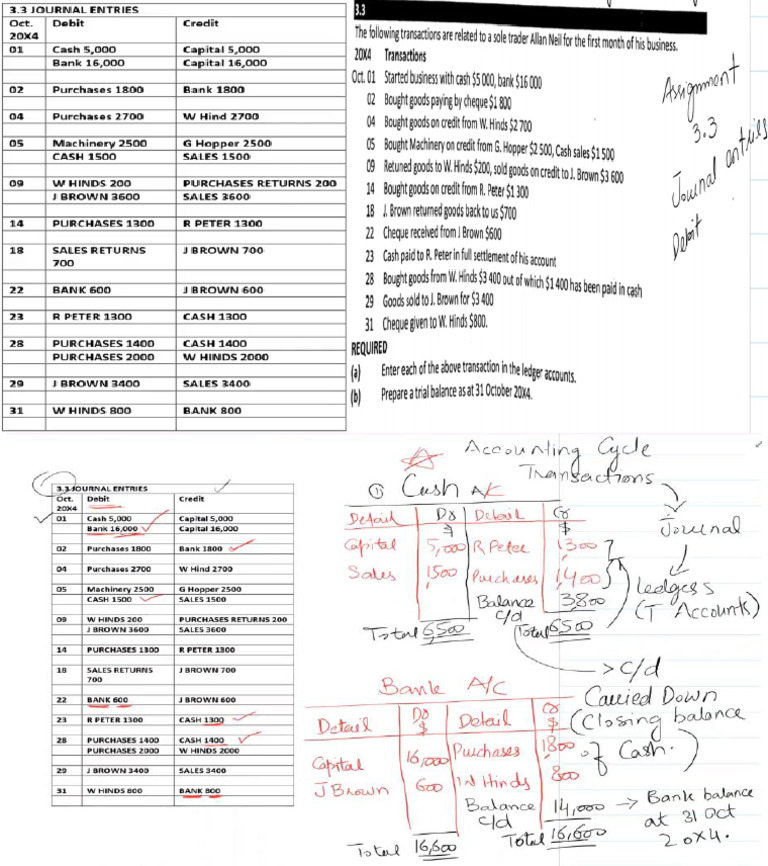 3.3 JOURNAL ENTRIES
Oct. 20X4 Debit Credit
01 Cash 5,000 Capital 5,000
Bank 16,000 Capital 16,000
02 Purchases 1800 Bank 1800
04 Purchases 2700 W Hind 2700
05 Machinery 2500 G Hopper 2500
CASH 1500 SALES 1500
09 W HINDS 200 PURCHASES RETURNS 200
J BROWN 3600 SALES 3600
14 PURCHASES 1300 R PETER 1300
18 SALES RETURNS 700 J BROWN 700
22 BANK 600 J BROWN 600
23 R PETER 1300 CASH 1300
28 PURCHASES 1400 CASH 1400
PURCHASES 2000 W HINDS 2000
29 J BROWN 3400 SALES 3400
31 W HINDS 800 BANK 800
3.3
The following transactions are related to a sole trader Allan Neil for the first month of his business.
20X4 Transactions
Oct. 01 Started business with cash $5 000, bank $16 000
02 Bought goods paying by cheque $1 800
04 Bought goods on credit from W. Hinds $2 700
05 Bought Machinery on credit from G. Hopper $2 500, Cash sales $1 500
09 Retuned goods to W. Hinds $200, sold goods on credit to J. Brown $3 600
14 Bought goods on credit from R. Peter $1 300
18 J. Brown returned goods back to us $700
22 Cheque received from J Brown $600
23 Cash paid to R. Peter in full settlement of his account
28 Bought goods from W. Hinds $3 400 out of which $1 400 has been paid in cash
29 Goods sold to J. Brown for $3 400
31 Cheque given to W. Hinds $800.
REQUIRED
(a) Enter each of the above transaction in the ledger accounts.
(b) Prepare a trial balance as at 31 October 20X4.
Assignment
3.3
Journal entries
Debit
3.3 JOURNAL ENTRIES
Oct. 20X4 Debit Credit
01 Cash 5,000 Capital 5,000
Bank 16,000 Capital 16,000
02 Purchases 1800 Bank 1800
04 Purchases 2700 W Hind 2700
05 Machinery 2500 G Hopper 2500
CASH 1500 SALES 1500
09 W HINDS 200 PURCHASES RETURNS 200
J BROWN 3600 SALES 3600
14 PURCHASES 1300 R PETER 1300
18 SALES RETURNS 700 J BROWN 700
22 BANK 600 J BROWN 600
23 R PETER 1300 CASH 1300
28 PURCHASES 1400 CASH 1400
PURCHASES 2000 W HINDS 2000
29 J BROWN 3400 SALES 3400
31 W HINDS 800 BANK 800
Accounting Cycle
Transactions
Journal
ledgers
(T Accounts)
① Cash A/C
Detail Dr $ Detail Cr $
Capital 5,000 R Peter 1300
Sales 1500 Purchases 1,400
Balance c/d 3,800
Total 6,500 Total 6500
c/d
Carried Down
(Closing balance
of Cash.)
Bank A/C
Detail Dr $ Detail Cr $
Capital 16,000 Purchases 1800
J Brown 600 W Hinds 800
Balance c/d 14,000
Total 16,600 Total 16,600
Bank balance
at 31 Oct
20X4.